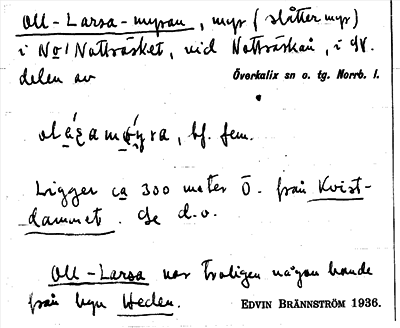 Oll-Larsa-myran, myr (slåttermyr)
i No! Nattträsket, vid Nattträskån, i SV.
delen av Överkalix sn o. tg. Norrb. l.
bf. fem.
Ligger ca 300 meter Ö. från Kvist-
dammet. Se d.o.
Oll-Larsa var troligen någon bonde
från byn Heden. EDVIN BRÄNNSTRÖM 1936.